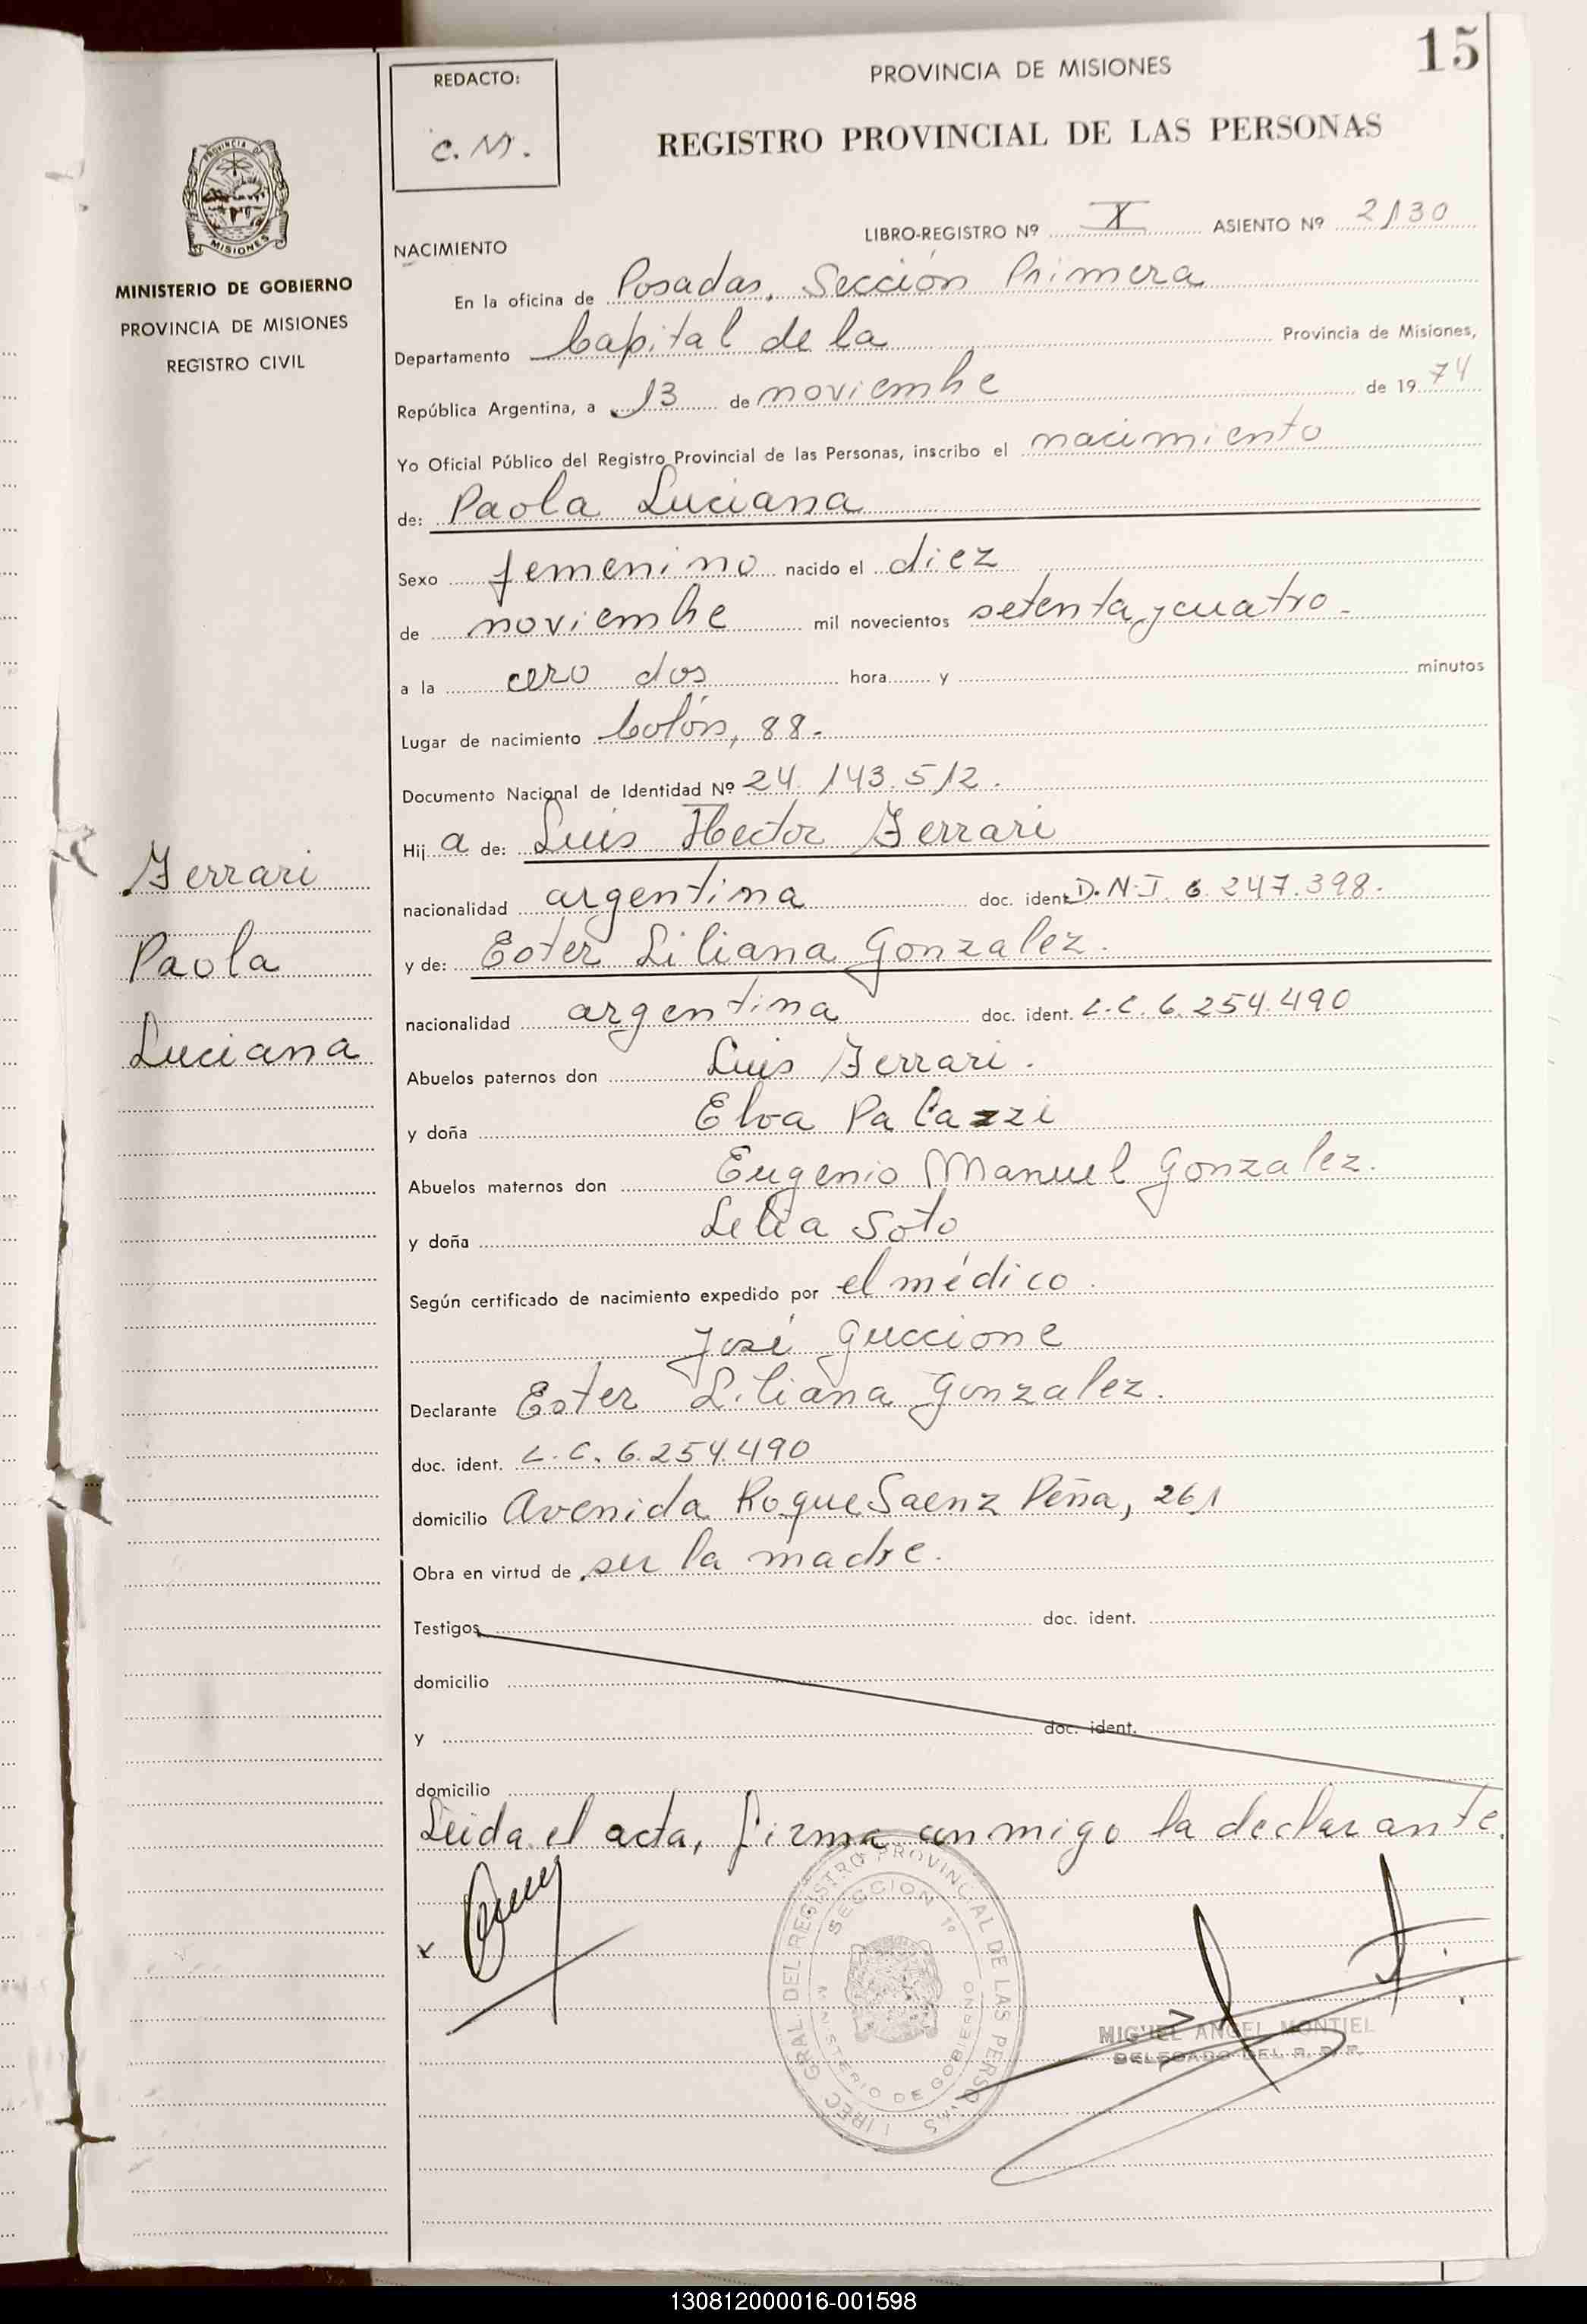 15
REDACTO:
C. M.
PROVINCIA DE MISIONES
REGISTRO PROVINCIAL DE LAS PERSONAS
PROVINCIA DE
MISIONES
MINISTERIO DE GOBIERNO
PROVINCIA DE MISIONES
REGISTRO CIVIL
LIBRO-REGISTRO Nº X ASIENTO Nº 2130
NACIMIENTO
En la oficina de Posadas, Sección Primera
Departamento Capital de la Provincia de Misiones,
República Argentina, a 13 de noviembre de 19 74
Yo Oficial Público del Registro Provincial de las Personas, inscribo el nacimiento
de: Paola Luciana
Sexo femenino nacido el diez
de noviembre mil novecientos setenta y cuatro.
a la cero dos hora y minutos
Lugar de nacimiento Colón, 88.
Documento Nacional de Identidad Nº 24.143.512.
Hij a de: Luis Hector Ferrari
nacionalidad argentina doc. ident. D.N.I. 6.247.398.
y de: Ester Liliana Gonzalez.
nacionalidad argentina doc. ident. L.C. 6.254.490
Abuelos paternos don Luis Ferrari.
y doña Elva Palazzi
Abuelos maternos don Eugenio Manuel Gonzalez.
y doña Lelia Soto
Según certificado de nacimiento expedido por el médico.
José Guccione
Declarante Ester Liliana Gonzalez.
doc. ident. L.C. 6.254.490
domicilio Avenida Roque Saenz Peña, 261
Obra en virtud de ser la madre.
Testigos doc. ident.
domicilio
y doc. ident.
domicilio
Leida el acta, firma conmigo la declarante.
Ferrari
Paola
Luciana
DIREC GRAL DEL REGISTRO PROVINCIAL DE LAS PERSONAS
SECCION 1º
MINISTERIO DE GOBIERNO
MIGUEL ANGEL MONTIEL
DELEGADO DEL R. P. P.
130812000016-001598